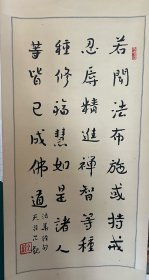 若聞法布施或持戒
忍辱精進禪智等種
種修福慧如是諸人
等皆已成佛道
法華經句